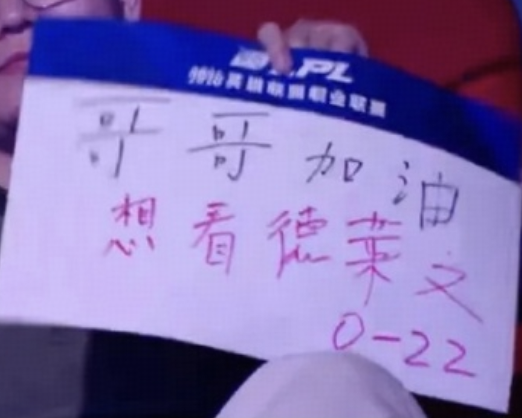 LPL
2016英雄联盟职业联赛
哥哥加油
想看德莱文
0-22